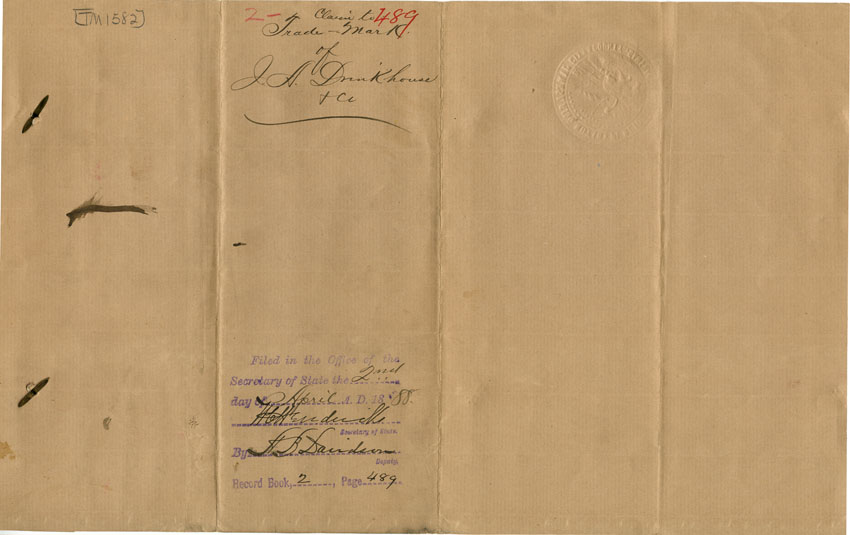 [TM1582]
2- Claim to 489
Trade-Mark
of
J. A. Drinkhouse
& Co
Filed in the Office of the
Secretary of State the 2nd
day of April A. D. 1888.
W C Hendricks
Secretary of State.
By F. B. Davidson
Deputy.
Record Book, 2, Page 489